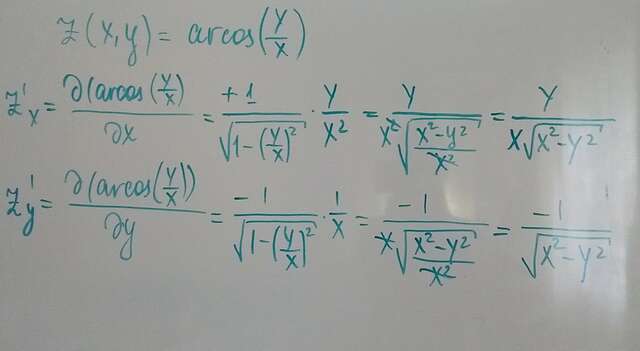 Z(x,y) = arcos(y/x)
Z'x = ∂(arcos(y/x)/∂x = +1/√(1-(y/x)²) · y/x² = y/(x²√((x²-y²)/x²)) = y/(x√(x²-y²))
Z'y = ∂(arcos(y/x))/∂y = -1/√(1-(y/x)²) · 1/x = -1/(x√((x²-y²)/x²)) = -1/√(x²-y²)